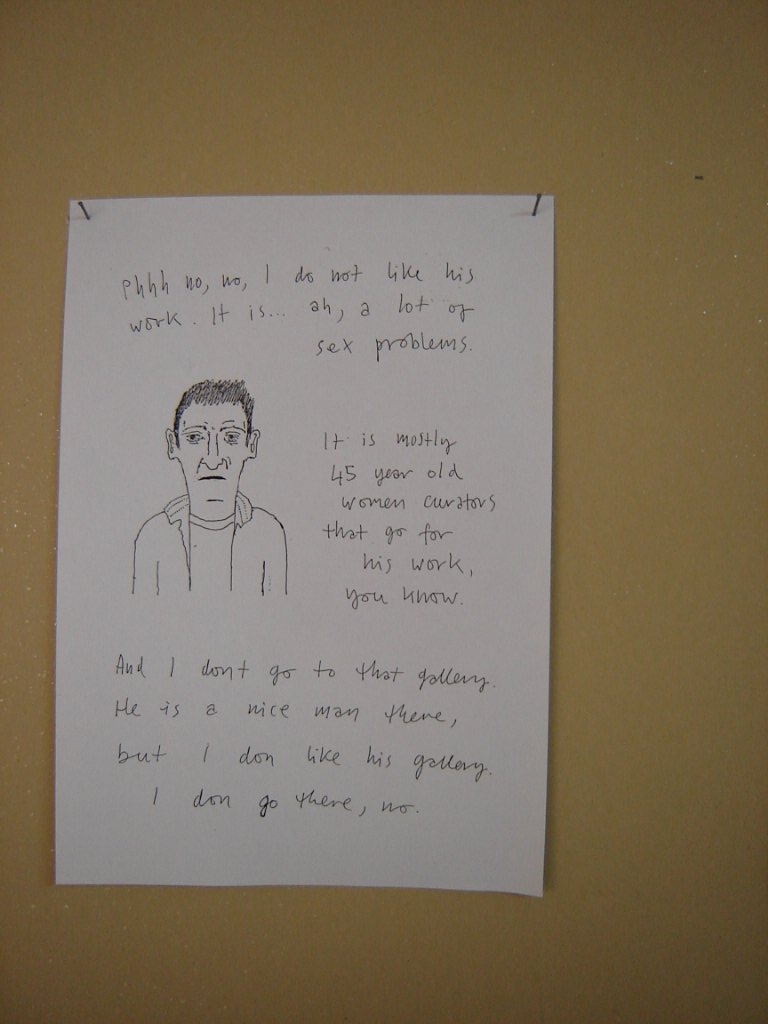 Phhh no, no, I do not like his
work. It is... ah, a lot of
sex problems.
It is mostly
45 year old
women curators
that go for
his work,
you know.
And I dont go to that gallery.
He is a nice man there,
but I don like his gallery.
I don go there, no.